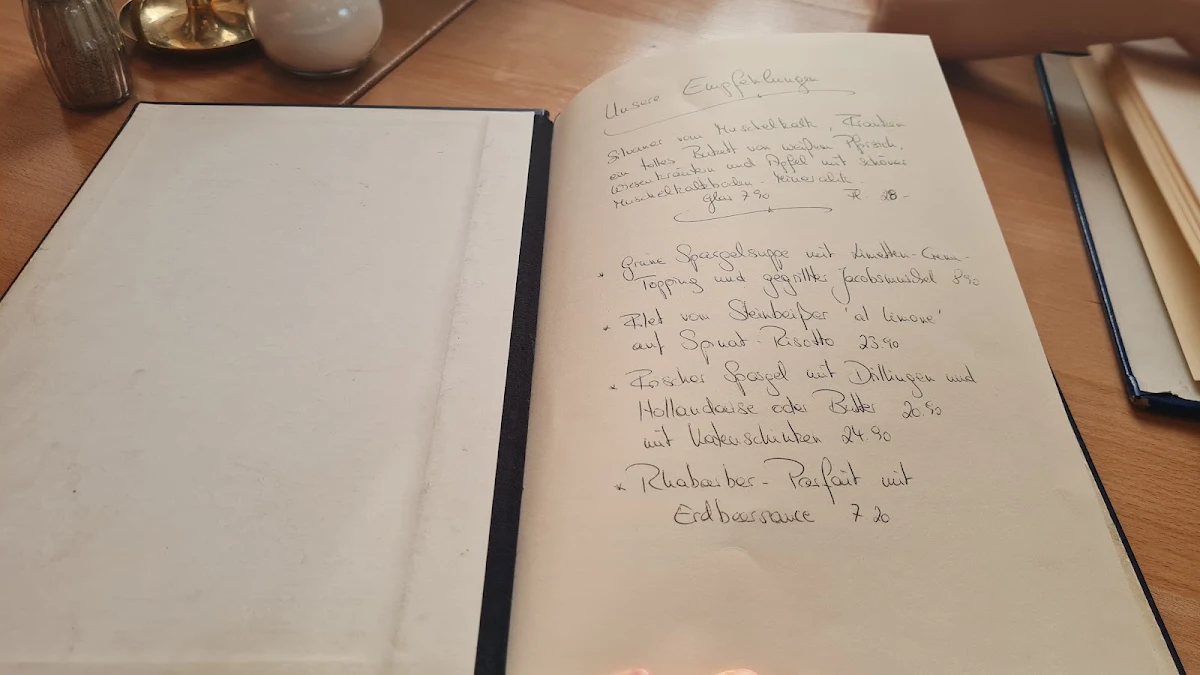 Unsere Empfehlungen
Silvaner vom Muschelkalk, Franken
ein tolles Bukett von weißem Pfirsich,
Wiesenkräutern und Apfel mit schöner
Muschelkalkboden-Mineralik.
Glas 7.90 Fl 28.-
* Grüne Spargelsuppe mit Limetten-Crema-
Topping und gegrillter Jacobsmuschel 8.90
* Filet vom Steinbeißer 'al limone'
auf Spinat-Risotto 23.90
* Frischer Spargel mit Drillingen und
Hollandaise oder Butter 20.90
mit Katenschinken 24.90
* Rhabarber-Parfait mit
Erdbeersauce 7.20